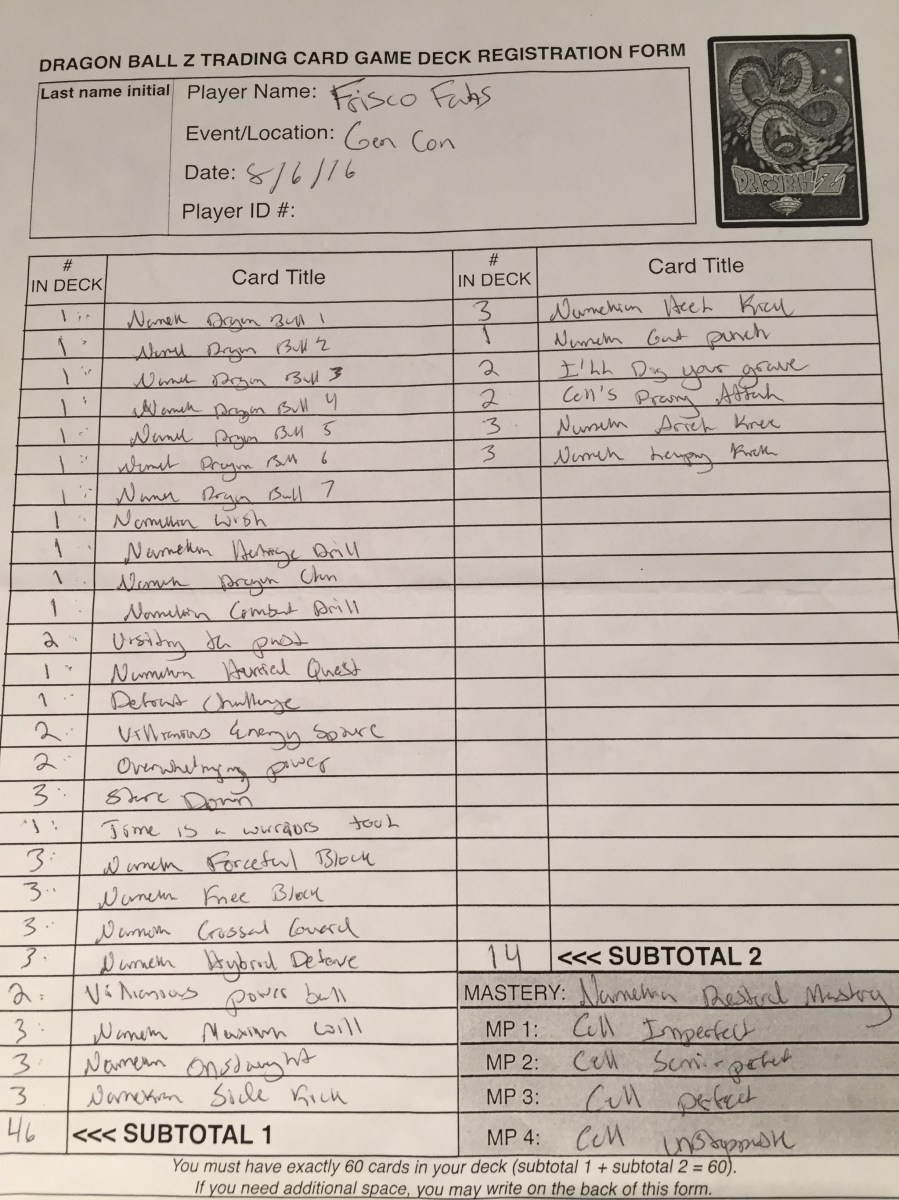 DRAGON BALL Z TRADING CARD GAME DECK REGISTRATION FORM
Last name initial
Player Name: Frisco Fabs
Event/Location: Gen Con
Date: 8/6/16
Player ID #:
DRAGONBALL Z
# IN DECK Card Title
1 Namek Dragon Ball 1
1 Namek Dragon Ball 2
1 Namek Dragon Ball 3
1 Namek Dragon Ball 4
1 Namek Dragon Ball 5
1 Namek Dragon Ball 6
1 Namek Dragon Ball 7
1 Namekian Wish
1 Namekian Heritage Drill
1 Namekian Dragon Clan
1 Namekian Combat Drill
2 Visiting the past
1 Namekian Hurried Quest
1 Defiant Challenge
2 Villainous Energy Sphere
2 Overwhelming power
3 Stare Down
1 Time is a warriors tool
3 Namekian Forceful Block
3 Namekian Knee Block
3 Namekian Crossed Guard
3 Namekian Hybrid Defense
2 Villainous power ball
3 Namekian Maximum will
3 Namekian Onslaught
3 Namekian Side Kick
46 <<< SUBTOTAL 1
# IN DECK Card Title
3 Namekian Heel Kick
1 Namekian Gut punch
2 I'll Dig your grave
2 Cell's Attack
3 Namekian Knee
3 Namekian Leaping Kick
14 <<< SUBTOTAL 2
MASTERY: Namekian Restored Mastery
MP 1: Cell Imperfect
MP 2: Cell Semi-perfect
MP 3: Cell perfect
MP 4: Cell unstoppable
You must have exactly 60 cards in your deck (subtotal 1 + subtotal 2 = 60).
If you need additional space, you may write on the back of this form.